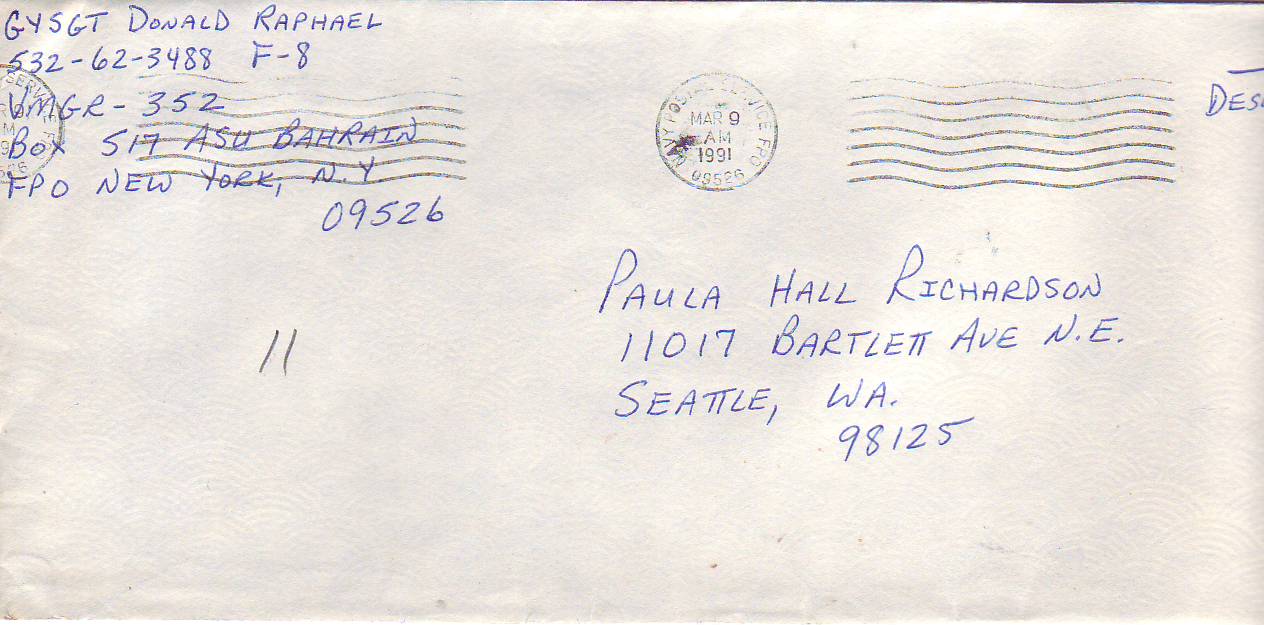 GYSGT DONALD RAPHAEL
532-62-3488 F-8
VMGR-352
BOX 517 ASU BAHRAIN
FPO NEW YORK, N.Y
09526
NAVY POSTAL SERVICE FPO
MAR 9
AM
1991
09526
PAULA HALL RICHARDSON
11017 BARTLETT AVE N.E.
SEATTLE, WA.
98125
11